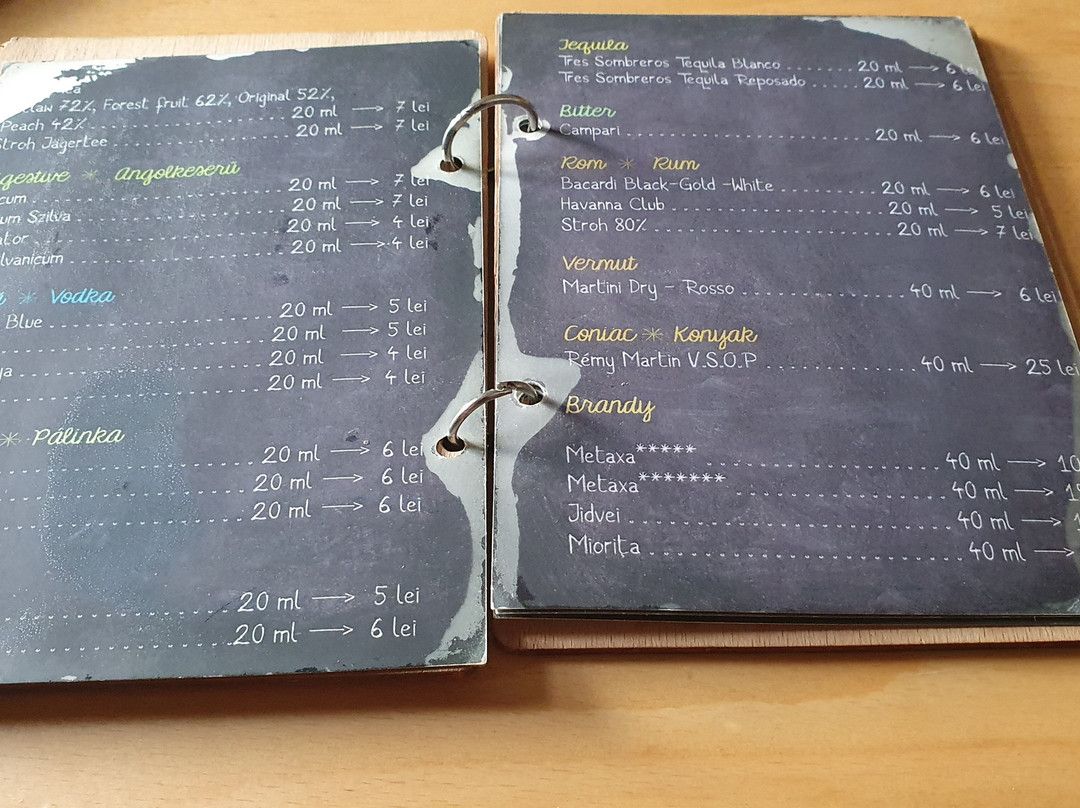 72%, Forest fruit 62%, Original 52%,
Peach 42% 20 ml → 7 lei
Stroh Jägertee 20 ml → 7 lei
Angolkeserű
20 ml → 7 lei
Szilva 20 ml → 7 lei
20 ml → 4 lei
20 ml → 4 lei
✳ Vodka
Blue 20 ml → 5 lei
20 ml → 5 lei
20 ml → 4 lei
20 ml → 4 lei
✳ Pálinka
20 ml → 6 lei
20 ml → 6 lei
20 ml → 6 lei
20 ml → 5 lei
20 ml → 6 lei
Tequila
Tres Sombreros Tequila Blanco 20 ml → 6 lei
Tres Sombreros Tequila Reposado 20 ml → 6 lei
Bitter
Campari 20 ml → 6 lei
Rom ✳ Rum
Bacardi Black-Gold-White 20 ml → 6 lei
Havanna Club 20 ml → 5 lei
Stroh 80% 20 ml → 7 lei
Vermut
Martini Dry - Rosso 40 ml → 6 lei
Coniac ✳ Konyak
Rémy Martin V.S.O.P 40 ml → 25 lei
Brandy
Metaxa***** 40 ml → 10
Metaxa******* 40 ml →
Jidvei 40 ml →
Miorița 40 ml →